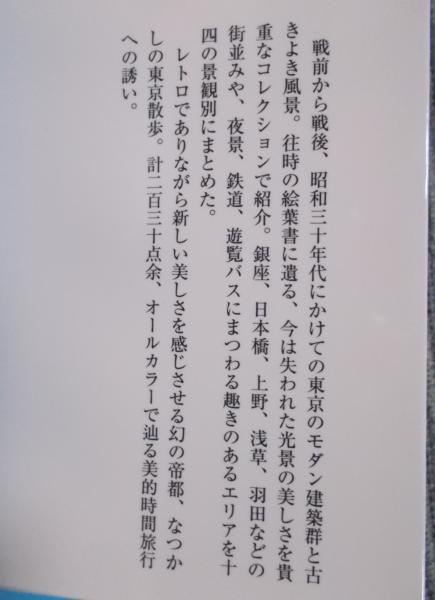 戦前から戦後、昭和三十年代にかけての東京のモダン建築群と古
きよき風景。往時の絵葉書に遺る、今は失われた光景の美しさを貴
重なコレクションで紹介。銀座、日本橋、上野、浅草、羽田などの
街並みや、夜景、鉄道、遊覧バスにまつわる趣きのあるエリアを十
四の景観別にまとめた。
レトロでありながら新しい美しさを感じさせる幻の帝都、なつか
しの東京散歩。計二百三十点余、オールカラーで辿る美的時間旅行
への誘い。